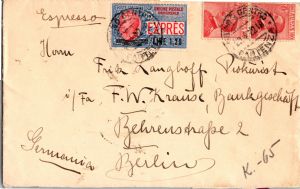 Espresso
EXPRES
LIRE 1.20
Herrn
Fritz Langhoff Prokurist
i/Fa. F. W. Krause, Bankgeschäft
Behrenstrasse 2
Berlin
Germania
K.-65